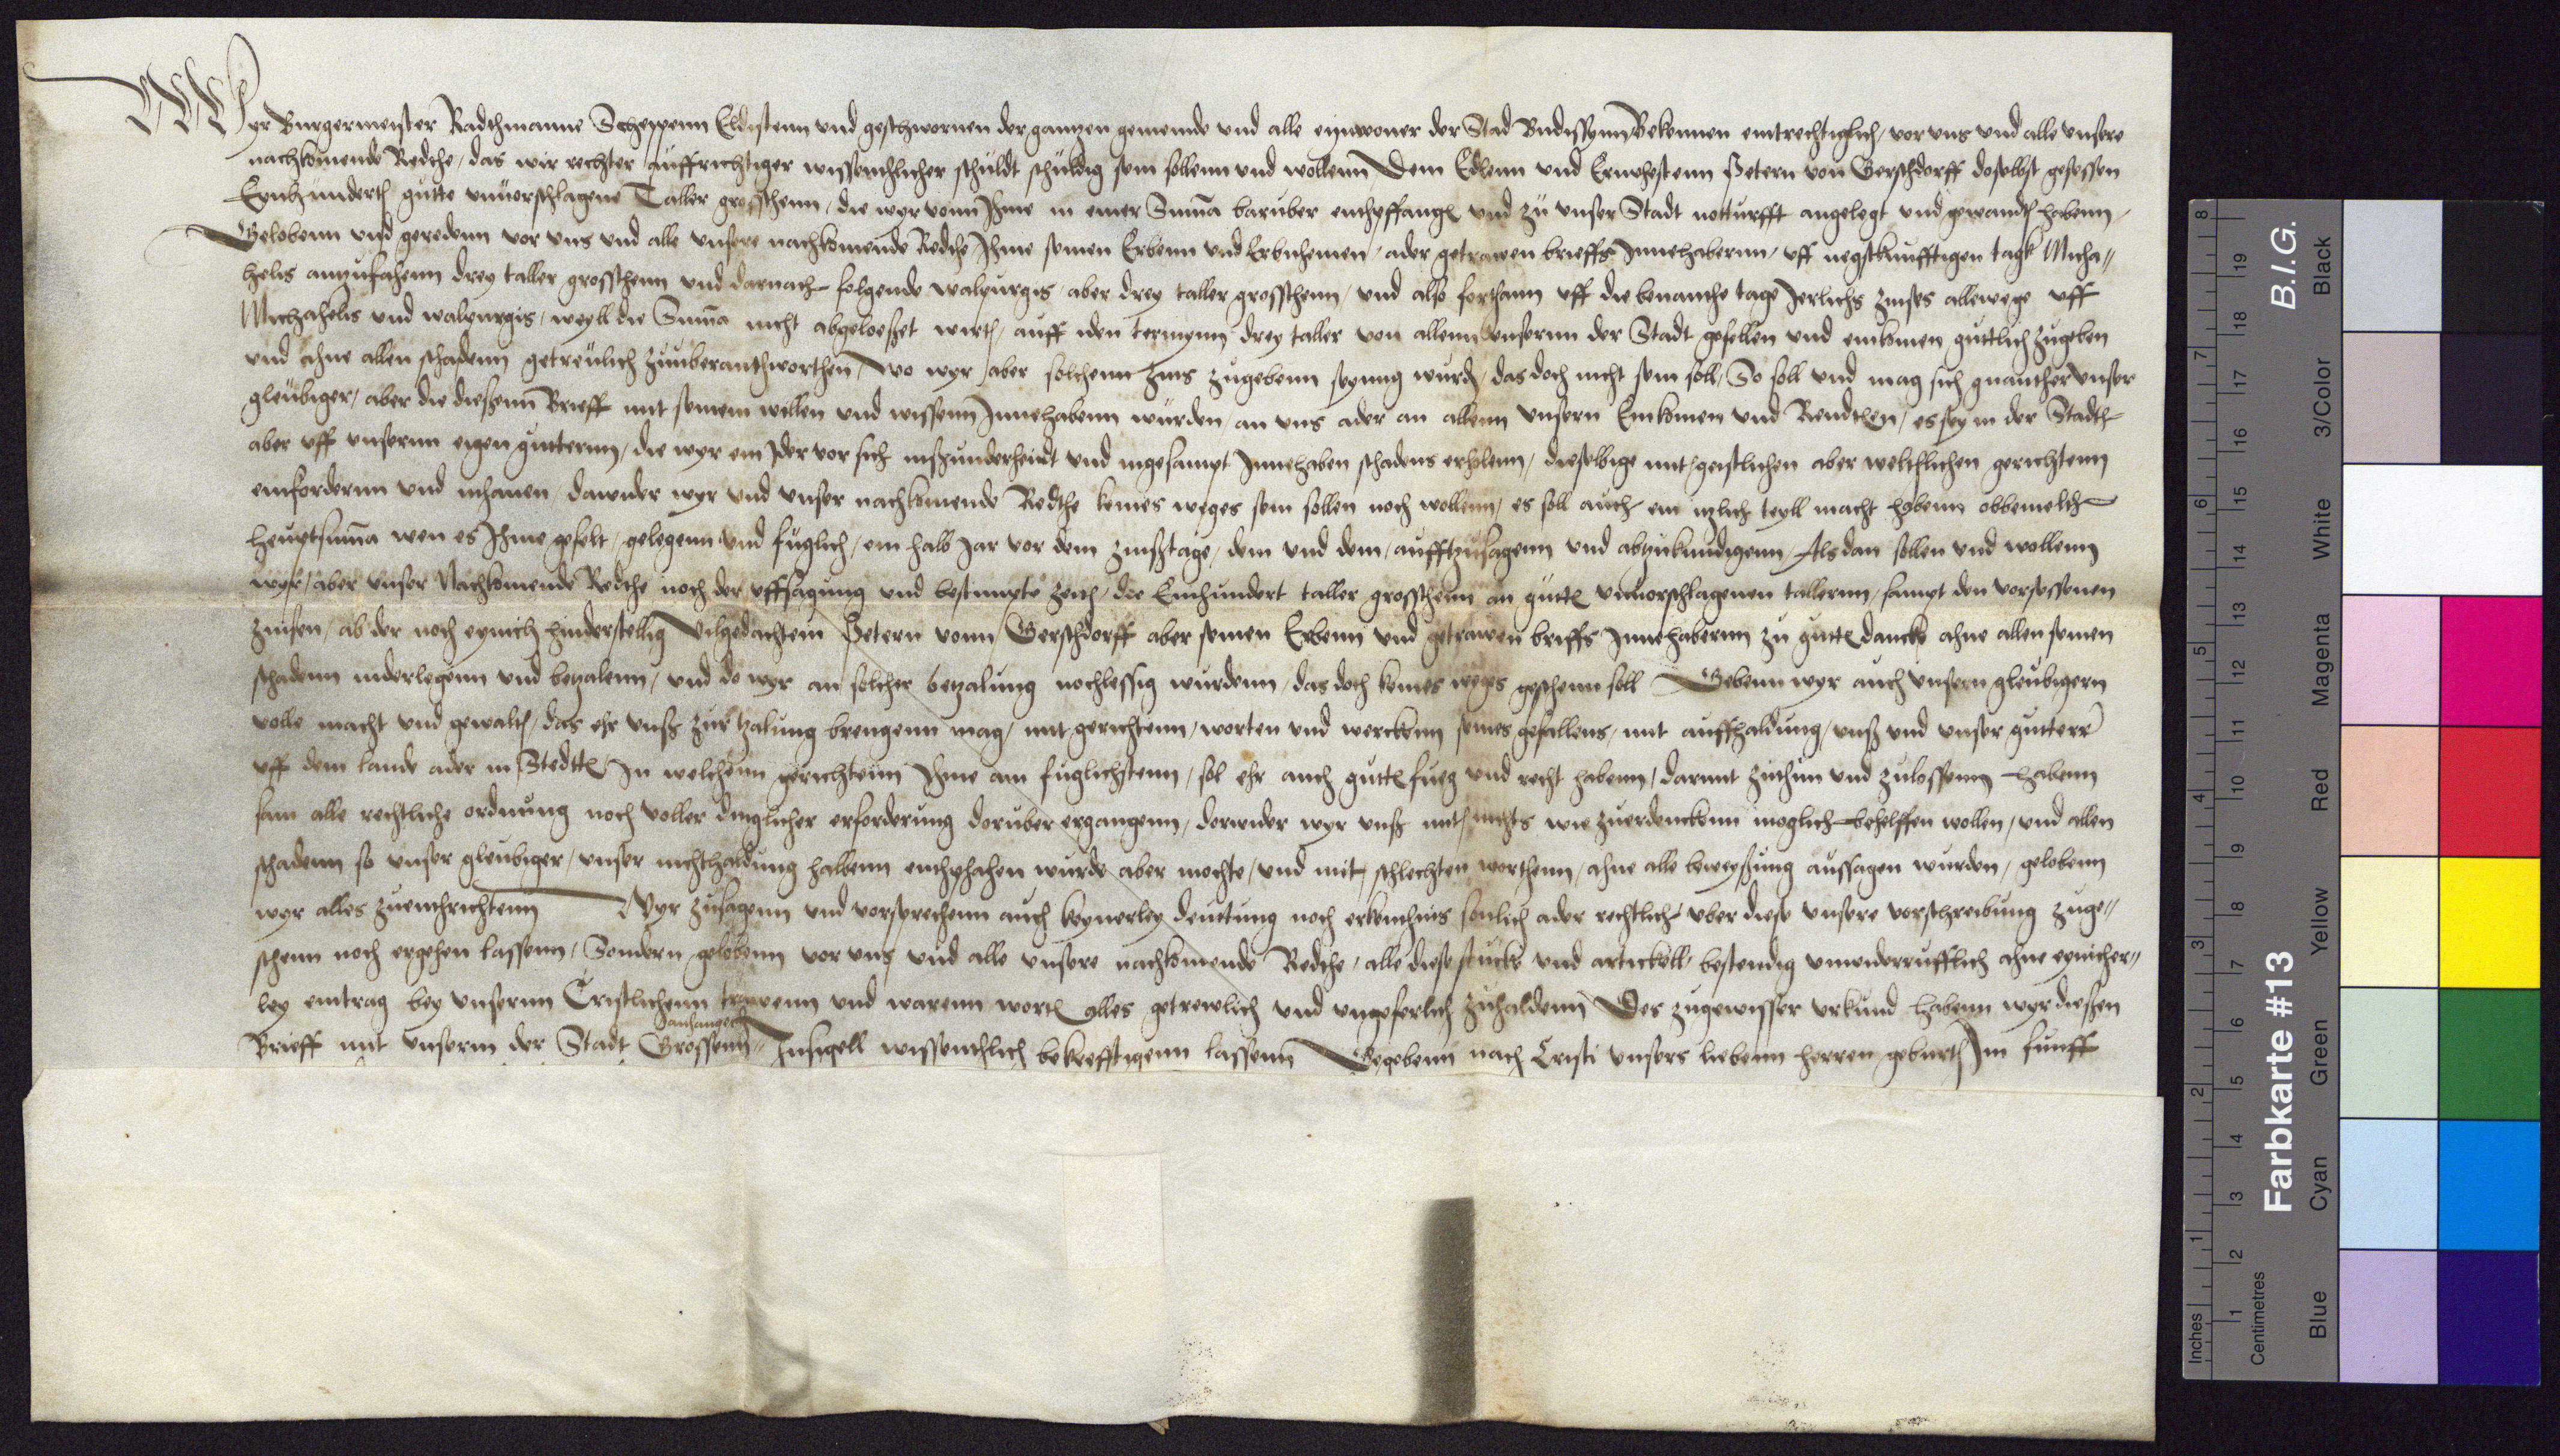 Wyr Burgermeister Radthmanne Scheppenn Eldistenn und geschwornen der gantzen gemeinde und alle einwoner der Stad Budissynn Bekennen eintrechtiglich, vor uns und alle unsere
nachkomende Redthe, das wir rechter auffrichtiger wissenthlicher schuldt schuldig sein sollenn und wollenn Dem Edlenn und Ernvhestenn Petern von Gerschdorff doselbst gesessen
Einhunderth gutte unvorschlagene Taller groschenn, die wyr vonn Ihme in einer Summa baruber enthpffangen und zu unser Stadt notturfft angelegt und gewandth habenn,
Gelobenn und geredenn vor uns und alle unsere nachkomende Redthe Ihme seinen Erbenn und Erbnhemen, ader getrawen brieffs Innehabernn, uff negstkunfftigen tagk Micha"
helis antzufahenn drey taller groschenn und darnach folgende walpurgis, aber drey taller groschenn, und also forthann uff die benanthe tage Jerlichs zinses allewege uff
Michahelis und walpurgis, weyll die Summa nicht abgeloeset wirth, auff iden termynn drey taller von allenn unsernn der Stadt gefellen und einkomen gutlich zugeben
und ahne allen schadenn getreulich zuuberanthworthen, Wo wyr aber solchenn zins zugebenn seymig wurden, das doch nicht sein soll, So soll und mag sich gnanther unser
gleubiger, aber die diesenn Brieff mit seinem willen und wissenn Innehabenn wurden, an uns ader an allenn unsern Einkomen und Rendthen, es sey in der Stadth
aber uff unsernn eigen gutternn, die wyr ein Ider vor sich insunderheidt und ingesampt Innehaben schadens erholenn, dieselbige mit geistlichen aber weltlichen gerichtenn
einfordernn und inhanen dawider wyr und unser nachkomende Redthe keines weges sein sollen noch wollenn, es soll auch ein itzlich teyll macht habenn obbemelthe
heuptsumma wen es Ihme gefelt, gelegenn und fuglich, ein halb Jar vor dem zinstage, dem und dem, aufftzusagenn und abtzukundigenn, Alsdan sollen und wollenn
wyr, aber unser Nachkomende Redthe noch der uffsagung und bestimpte zeith, die Einhundert taller groschenn an gutten unvorschlagenen tallernn, sampt den vorsessenen
zinsen, ab der noch eynich hinderstellig Vilgedachtem Petern vonn Gerschdorff aber seinen Erbenn und getrawen briffs Innehabernn zu gutten dancke ahne allen seinen
schadenn niderlegenn und betzalenn, und do wyr an solcher betzalung nochlessig wurdenn, das doch keines weges geschenn soll Gebenn wyr auch unsern gleubigern
volle macht und gewalth, das ehr unß zur tzalung brengenn mag, mit gerichtenn, worten und werckenn seines gefallens, mit auffhaldung, unß und unser gutterr
uff dem lande ader in Stedtten, In welchenn gerichtenn Ihme am fuglichstenn, sol ehr auch gutten fueg und recht habenn, darmit zuthun und zulossenn habenn
sam alle rechtliche ordnung noch voller dinglicher erforderung doruber ergangenn, dorwider wyr unß mith nichts wie zuerdenckenn moglich behelffen wollen, und allen
schadenn so unser gleubiger, unser nichthaldung halbenn enthphahen wurde aber mochte, und mit schlechten worthenn, ahne alle beweysung aussagen wurden, gelobenn
wyr alles zuenthrichtenn Wyr zusagenn und vorsprechenn auch keynerley deutung noch erkenthnis sonlich ader rechtlich uber diese unsere vorschreibung zuge"
schenn noch ergehen lassenn, Sondern gelobenn vor uns und alle unsere nachkomende Redthe, alle diese stucke und artickell, bestendig unwiderrufflich ahne eynicher"
ley eintrag bey unsernn Cristlichenn trawenn und warenn worten alles getrewlich und ungeferlich zuhaldenn Des zugewisser urkund habenn wyr diesen
Brieff mit unserm der Stadt Grossenn anhangend Insigell wissenthlich bekrefftigenn lassenn Gegebenn nach Cristi unsers liebenn herren geburth Im funff
Inches
Centimetres
1 2 3 4 5 6 7 8
1 2 3 4 5 6 7 8 9 10 11 12 13 14 15 16 17 18 19
Farbkarte #13
B.I.G.
Blue Cyan Green Yellow Red Magenta White 3/Color Black